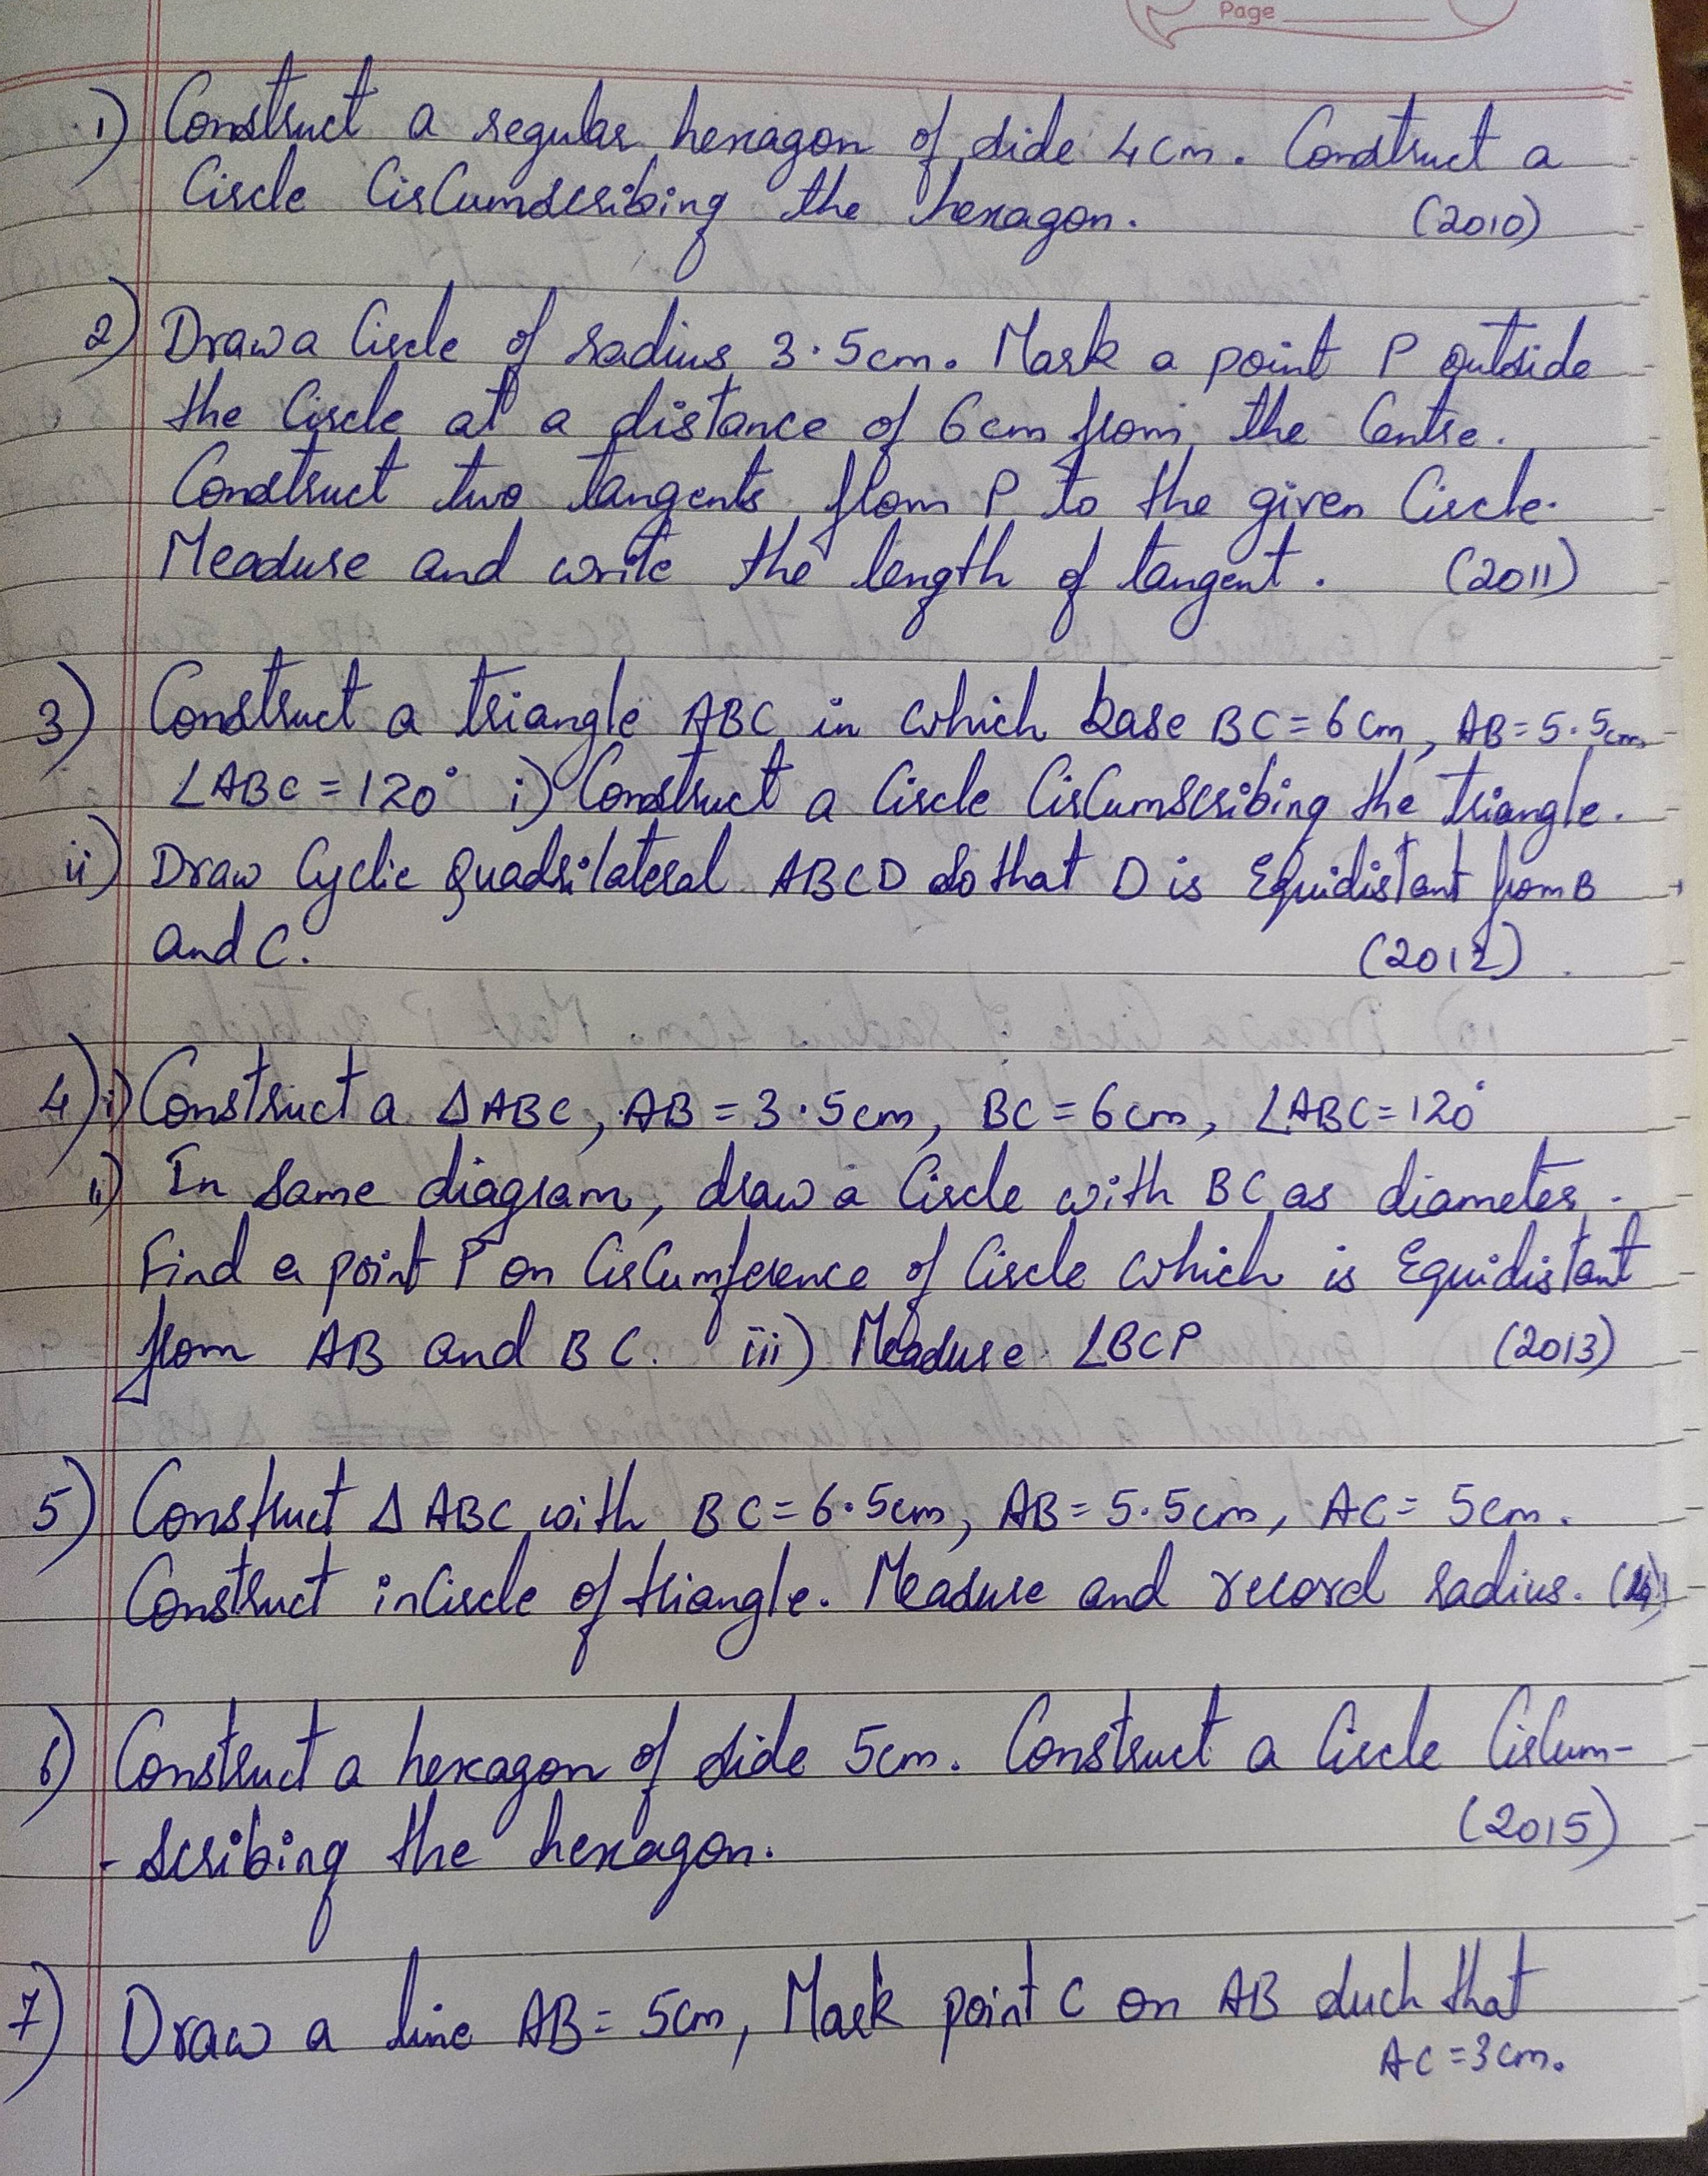 Page
1) Construct a regular hexagon of side 4cm. Construct a
Circle Circumscribing the hexagon. (2010)
2) Draw a Circle of radius 3.5cm. Mark a point P outside
the Circle at a distance of 6cm from the Centre.
Construct two tangents from P to the given Circle.
Measure and write the length of tangent. (2011)
3) Construct a triangle ABC in which base BC = 6cm, AB = 5.5cm,
∠ABC = 120° i) Construct a Circle Circumscribing the triangle.
ii) Draw Cyclic Quadrilateral ABCD so that D is Equidistant from B
and C. (2012)
4) i) Construct a ΔABC, AB = 3.5cm, BC = 6cm, ∠ABC = 120°
ii) In Same diagram, draw a Circle with BC as diameter.
Find a point P on Circumference of Circle which is Equidistant
from AB and BC. iii) Measure ∠BCP (2013)
5) Construct Δ ABC with BC = 6.5cm, AB = 5.5cm, AC = 5cm.
Construct inCircle of triangle. Measure and record radius. (14)
6) Construct a hexagon of side 5cm. Construct a Circle Circum-
-scribing the hexagon. (2015)
7) Draw a line AB = 5cm, Mark point C on AB such that
AC = 3cm.